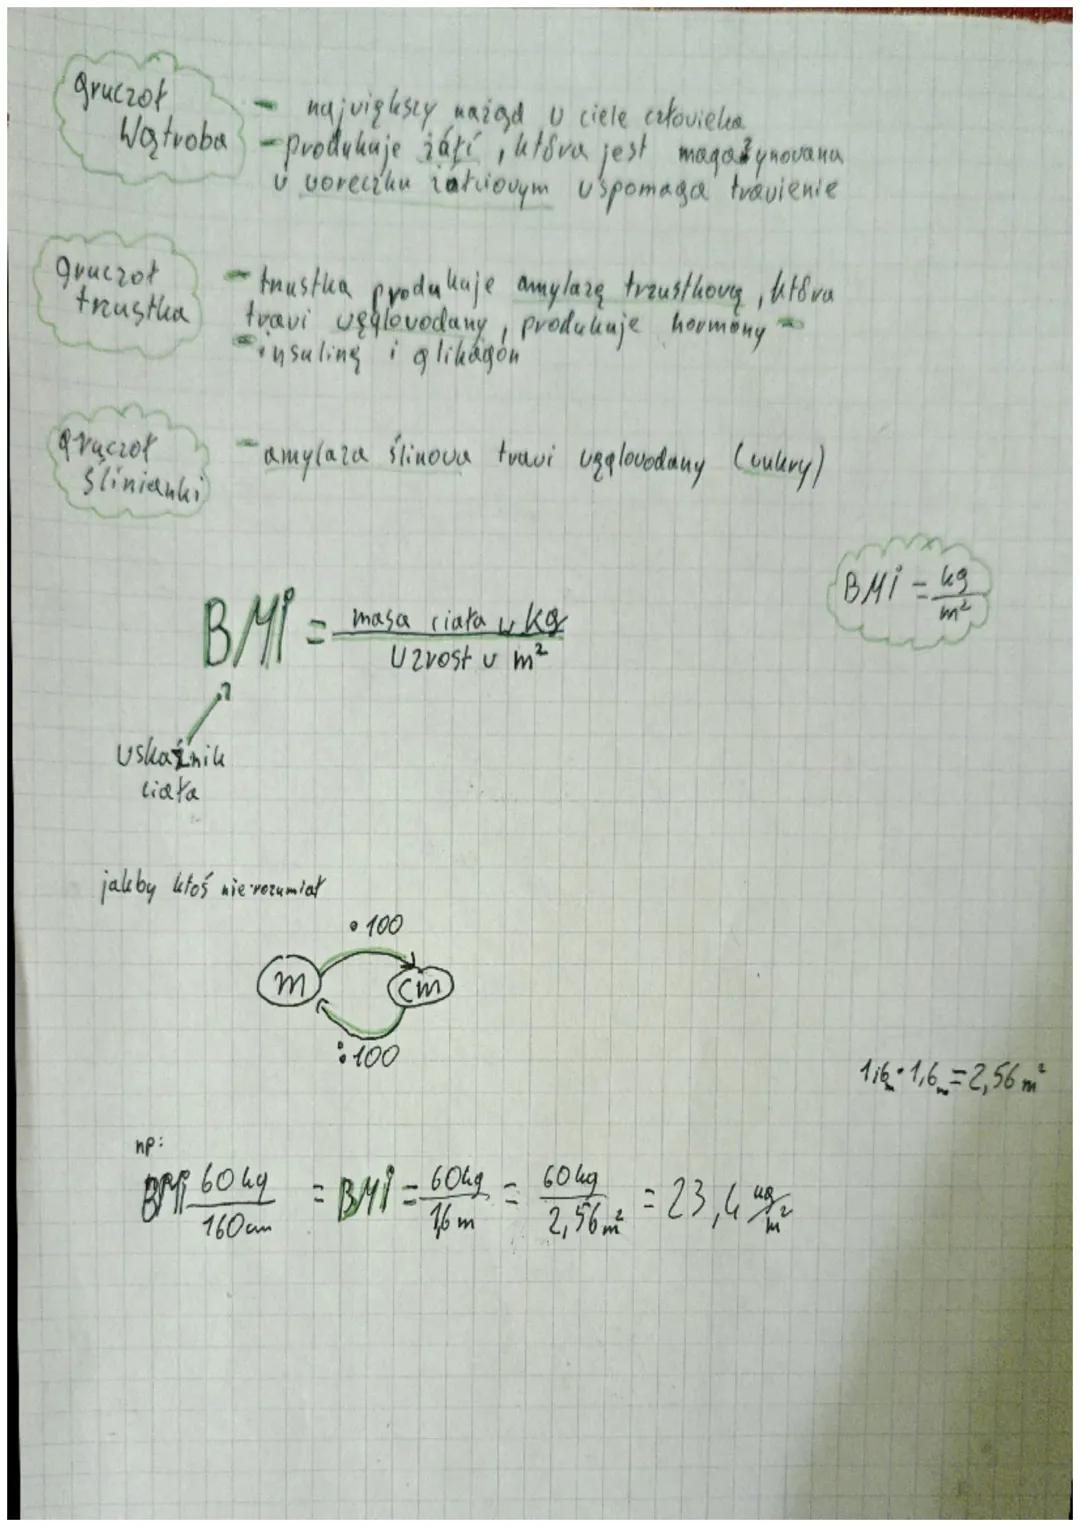 gruczoł
Wątroba
- największy narząd w ciele człowieka
- produkuje żółć, która jest magazynowana
w woreczku żółciowym wspomaga trawienie
gruczoł
trzustka
- trzustka produkuje amylazę trzustkową, która
trawi węglowodany, produkuje hormony -
- insulinę i glikagon
gruczoł
ślinianki
- amylaza ślinowa trawi węglowodany (cukry)
BMI = kg/m²
BMI = masa ciała w kg
wzrost w m²
wskaźnik
ciała
jakby ktoś nie rozumiał
• 100
m cm
: 100
1,6m • 1,6m = 2,56 m²
np:
BMI 60kg/160cm = BMI = 60kg/1,6m = 60kg/2,56m² = 23,4 kg/m²